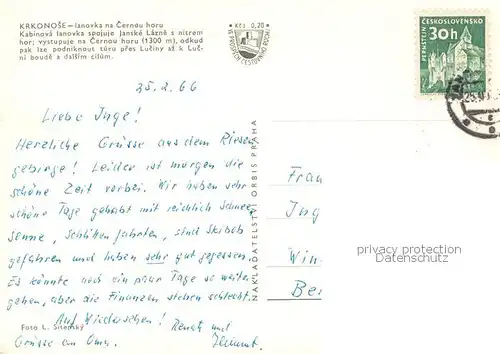 KRKONOŠE – lanovka na Černou horu
Kabinová lanovka spojuje Janské Lázně s nitrem
hor; vystupuje na Černou horu (1300 m), odkud
pak lze podniknout túru přes Lučiny až k Luč-
ní boudě a dalším cílům.
Kčs 0,20
VE PROSPĚCH CESTOVNÍHO RUCHU
ČESKOSLOVENSKO
30h
PERNŠTEJN
25.2.66
Liebe Inge!
Herzliche Grüsse aus dem Riesen
gebirge! Leider ist morgen die
schöne Zeit vorbei. Wir haben sehr
schöne Tage gehabt mit reichlich Schnee,
Sonne, Schlittenfahrten, sind Skibob
gefahren und haben sehr gut gegessen.
Es könnte noch ein paar Tage so weiter
gehen, aber die Finanzen stehen schlecht.
Auf Wiedersehen!
Renate und
Grüsse an Oma. Helmut.
Foto L. Sitenský
NAKLADATELSTVÍ ORBIS PRAHA
Frau
Ing
Win
Ber
privacy protection
Datenschutz